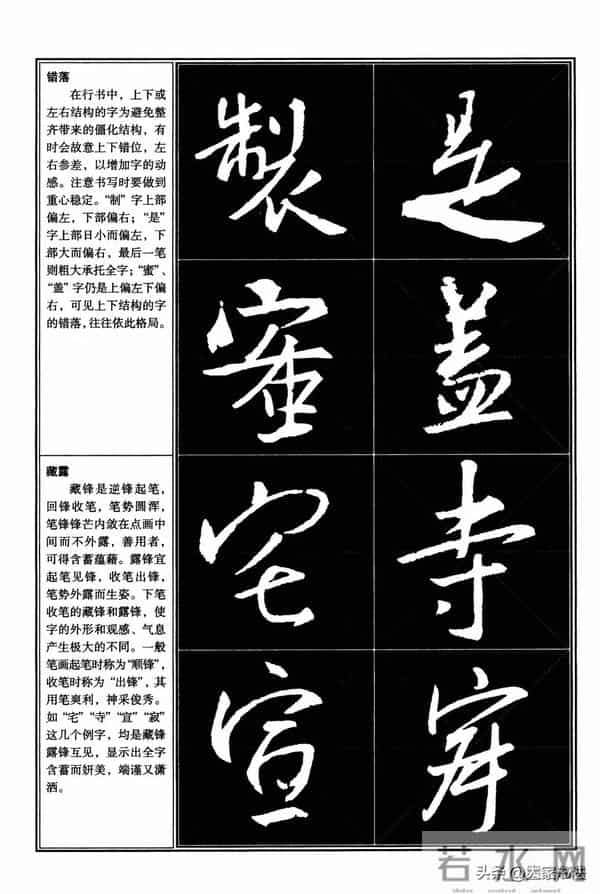 错落
在行书中，上下或
左右结构的字为避免整
齐带来的僵化结构，有
时会故意上下错位，左
右参差，以增加字的动
感。注意书写时要做到
重心稳定。“制”字上部
偏左，下部偏右；“是”
字上部日小而偏左，下
部大而偏右，最后一笔
则粗大承托全字；“蜜”、
“盖”字仍是上偏左下偏
右，可见上下结构的字
的错落，往往依此格局。
製 是
蜜 盖
藏露
藏锋是逆锋起笔，
回锋收笔，笔势圆浑，
笔锋锋芒内敛在点画中
间而不外露，善用者，
可得含蓄蕴藉。露锋宜
起笔见锋，收笔出锋，
笔势外露而生姿。下笔
收笔的藏锋和露锋，使
字的外形和观感、气息
产生极大的不同。一般
笔画起笔时称为“顺锋”，
收笔时称为“出锋”，其
用笔爽利，神采俊秀。
如“宅”“寺”“宣”“寂”
这几个例字，均是藏锋
露锋互见，显示出全字
含蓄而妍美，端谨又潇
洒。
宅 寺
宣 寂
若水网
头条